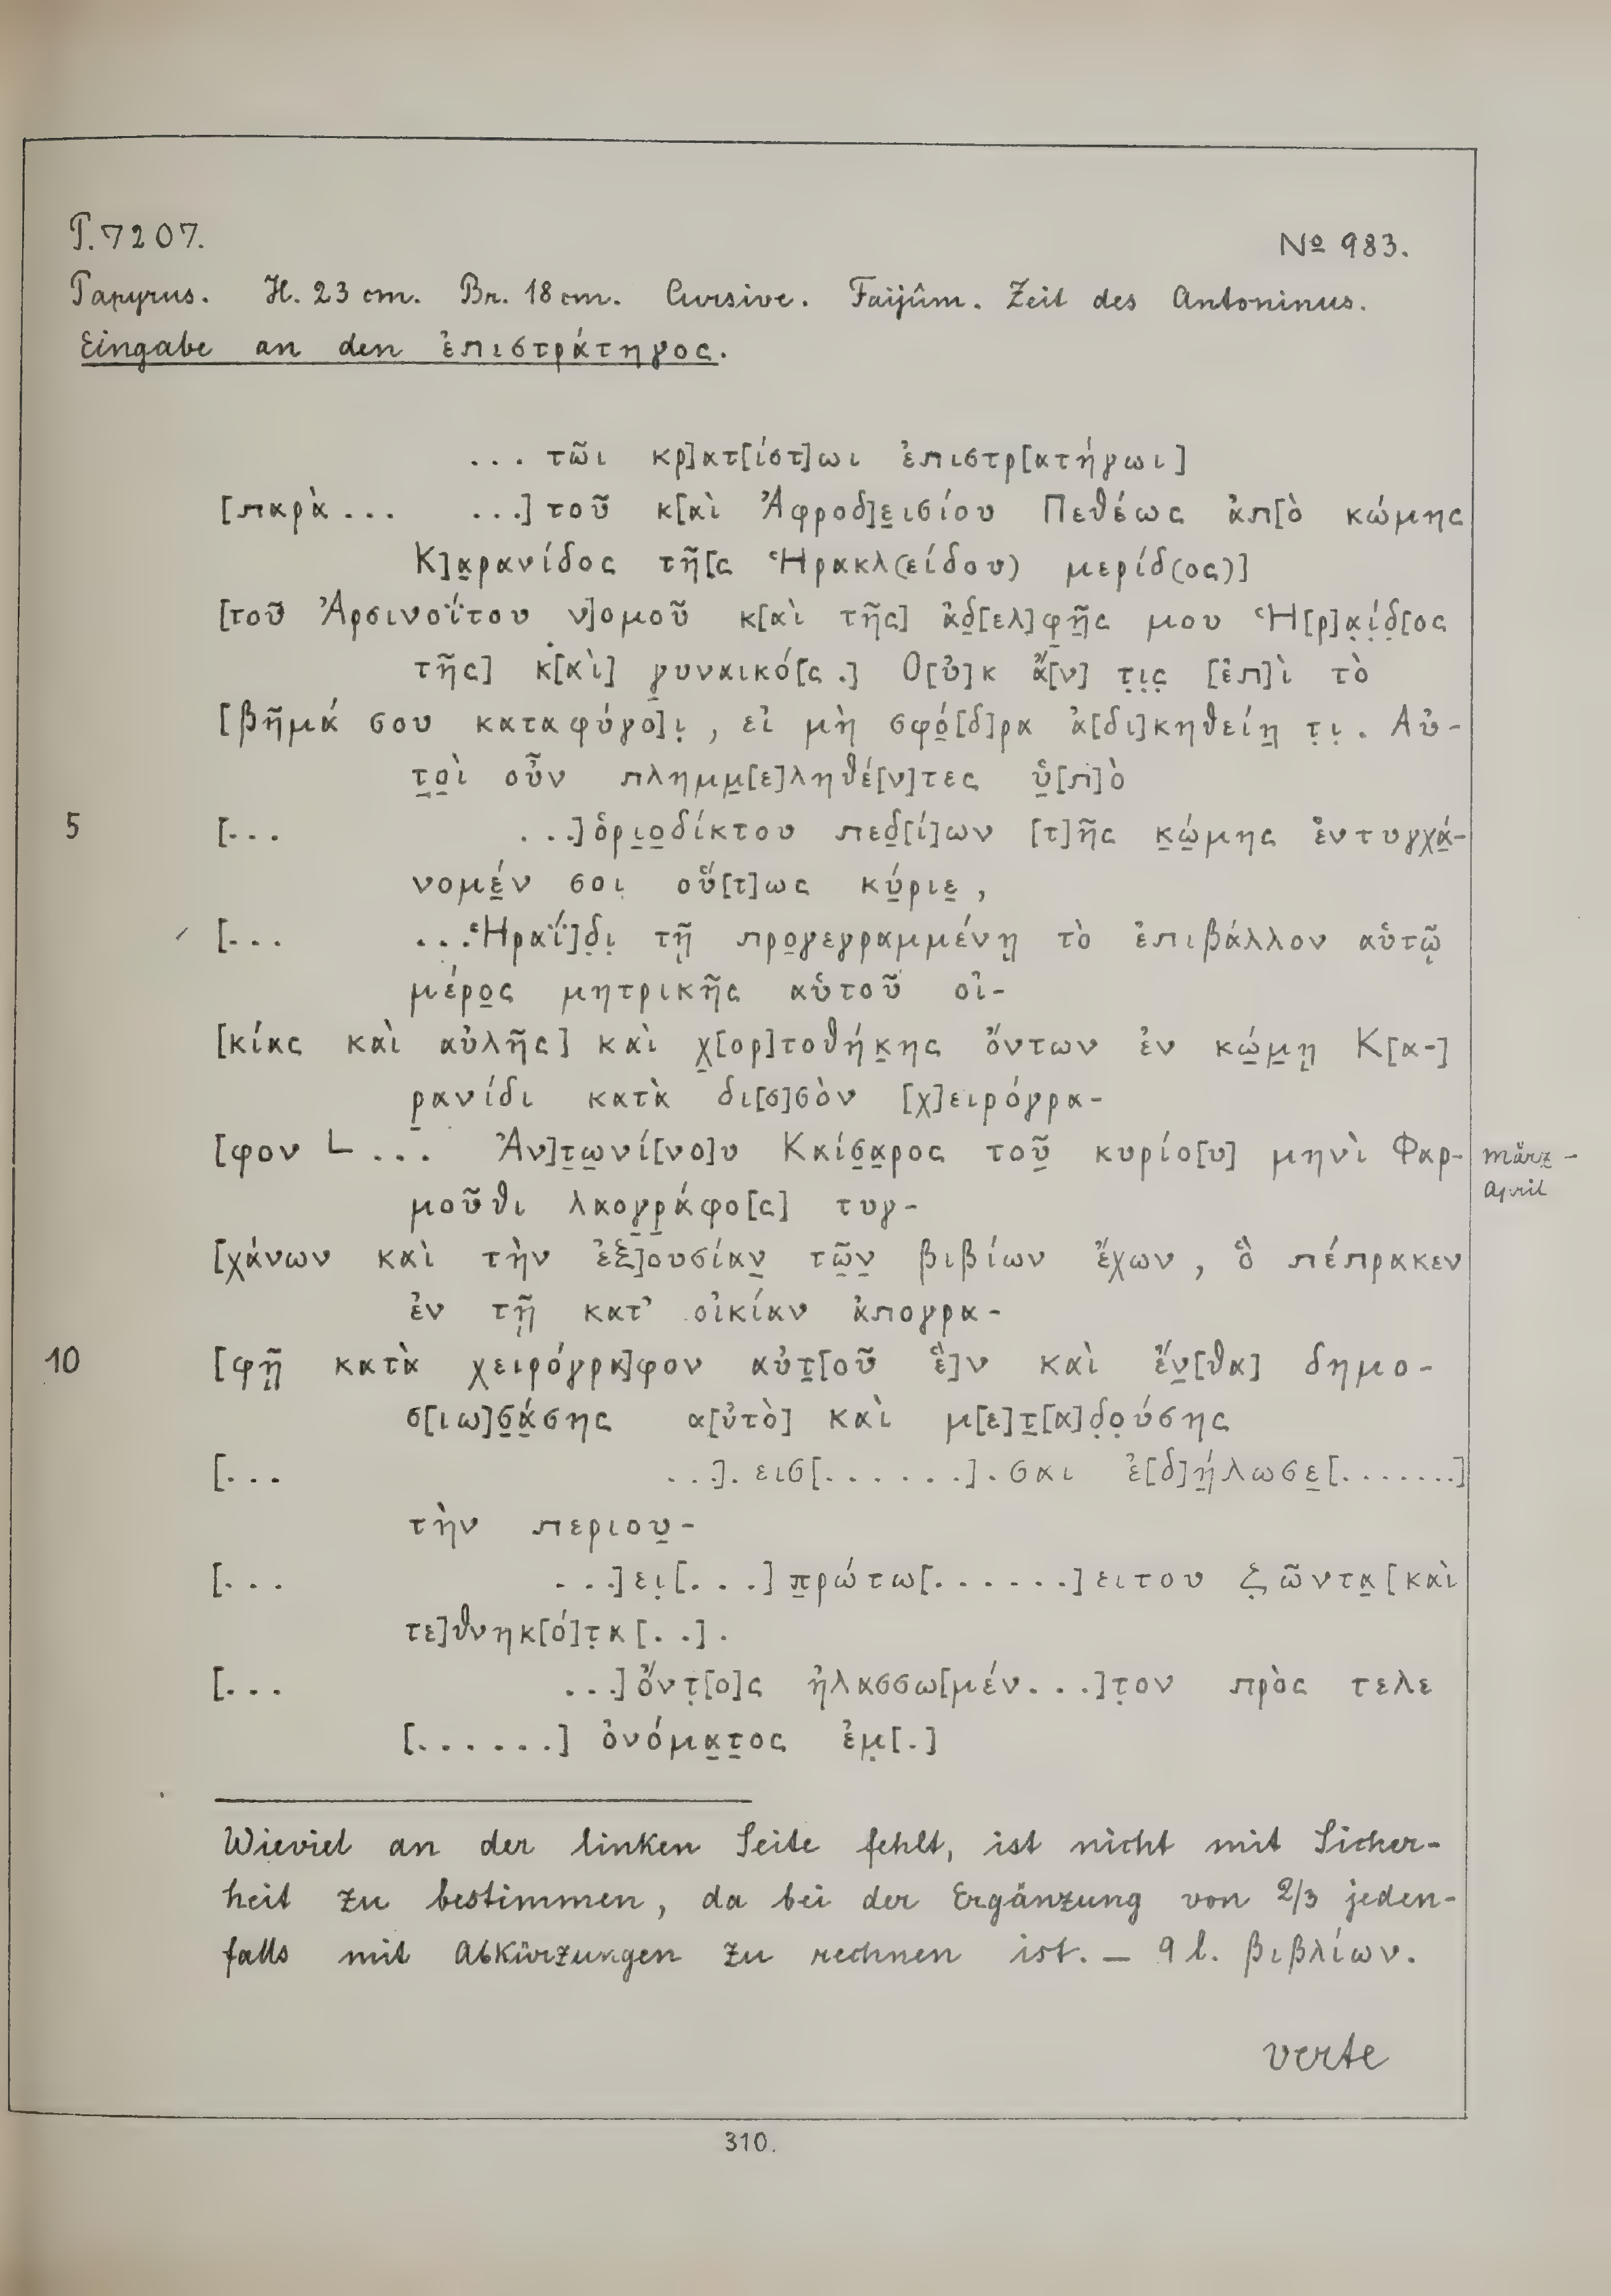 P. 7207.
No 983.
Papyrus. H. 23 cm. Br. 18 cm. Cursive. Faijûm. Zeit des Antoninus.
Eingabe an den ἐπιστράτηγος.
... τῶι κρ]ατ[ίστ]ωι ἐπιστρ[ατήγωι]
[παρὰ ... ...] τοῦ κ[αὶ Ἀφροδ]ε̣ισίου Πεθέως ἀπ[ὸ κώμης
Κ]α̣ρανίδος τῆ[ς Ἡρακλ(είδου) μερίδ(ος)]
[τοῦ Ἀρσινοΐτου ν]ομοῦ κ[αὶ τῆς] ἀδ̣[ελ]φ̣ῆ̣ς μου Ἡ[ρ]α̣ί̣δ̣[ος
τῆς] κ[αὶ] γ̣υναικό[ς.] Ο[ὐ]κ ἄ[ν] τ̣ι̣ς̣ [ἐπ]ὶ τὸ
[βῆμά σου καταφύγο]ι̣, εἰ μὴ σφό̣[δ]ρα ἀ[δι]κηθείη̣ τ̣ι̣. Αὐ-
τ̣ο̣ὶ οὖν πλημμ̣[ε]ληθέ[ν]τες ὑ̣[π]ὸ
5 [... ...] ὁρι̣ο̣δίκτου πεδ̣[ί]ων [τ]ῆς κ̣ώ̣μης ἐντυγχά̣-
νομέ̣ν σοι οὕ[τ]ως κύ̣ριε̣,
[... ... Ἡραΐ]δ̣ι̣ τῇ προ̣γεγραμμένῃ τὸ ἐπιβάλλον αὐτῷ
μέρο̣ς μητρικῆς αὐτοῦ οἰ-
[κίας καὶ αὐλῆς] καὶ χ̣[ορ]τοθήκ̣ης ὄντων ἐν κώ̣μ̣ῃ Κ[α-]
ρ̣ανίδι κατὰ δι[σ]σὸν [χ]ειρόγρα-
[φον L ... Ἀν]τ̣ω̣νί[νο]υ Καίσ̣α̣ρος τοῦ̣ κυρίο[υ] μηνὶ Φαρ-
März -
April
μοῦθι λαογ̣ρ̣άφο[ς] τυγ-
[χάνων καὶ τὴν ἐξ]ουσίαν̣ τῶ̣ν̣ βιβίων ἔχων, ὃ πέπρακεν
ἐν τῇ κατ’ οἰκίαν ἀπογρα-
10 [φῇ κατὰ χειρόγρα]φον αὐτ̣[οῦ ἓ]ν καὶ ἔν̣[θα] δημο-
σ[ιω]σ̣ά̣σης α[ὐτὸ] καὶ μ[ε]τ̣[α]δ̣ο̣ύσης
[... ...]. εισ[......]. σαι ἐ[δ]ή̣λωσε̣[.......]
τὴν περιου̣-
[... ...] ει̣[...] π̣ρώτω[......] ειτου ζ̣ῶντα̣ [καὶ
τε]θνηκ[ό]τ̣α[..].
[... ...] ὄντ̣[ο]ς ἠλασσω[μέν...]τ̣ον πρὸς τελε
[......] ὀνόμα̣τ̣ος ἐμ̣[.]
Wieviel an der linken Seite fehlt, ist nicht mit Sicher-
heit zu bestimmen, da bei der Ergänzung von 2/3 jeden-
falls mit Abkürzungen zu rechnen ist. — 9 l. βιβλίων.
verte
310.